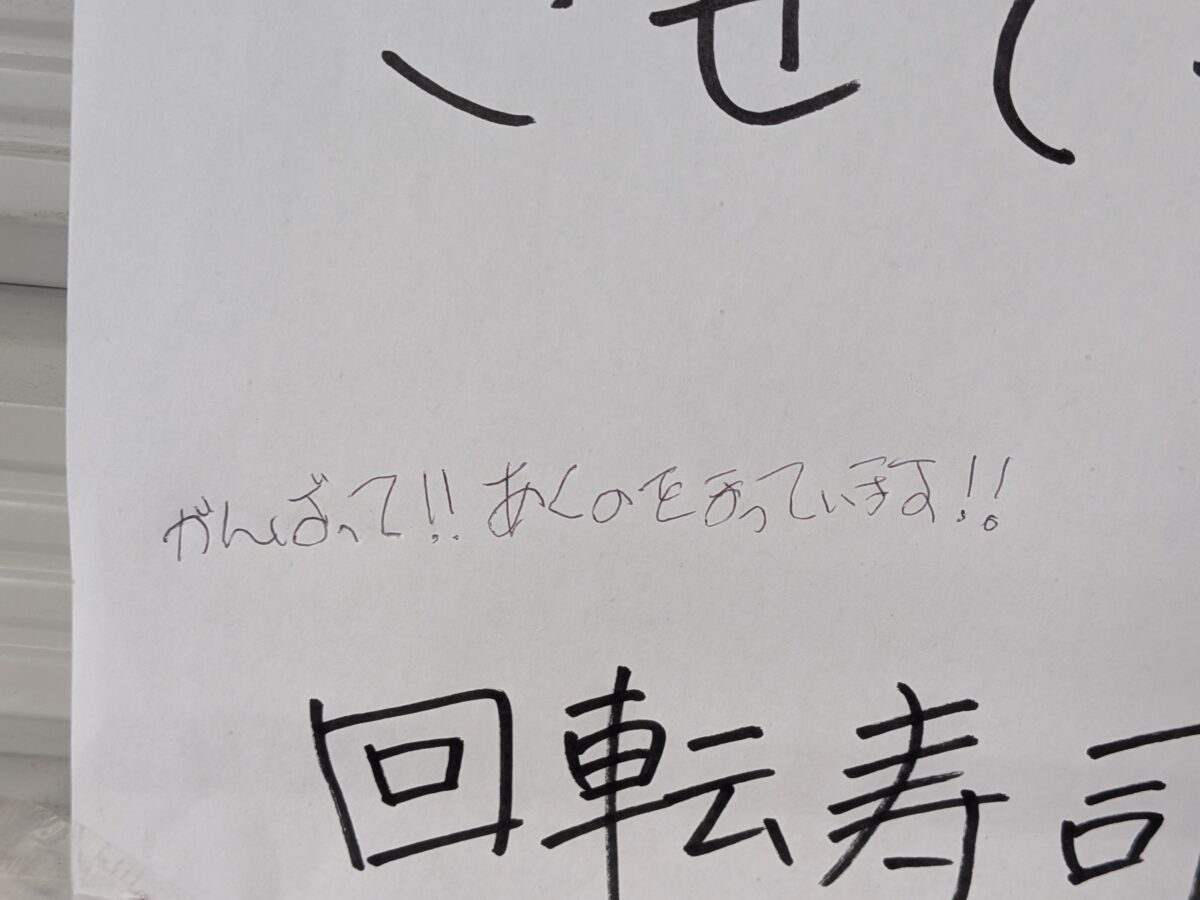 させ
がんばって!! あくのをまっています!!
回転寿司